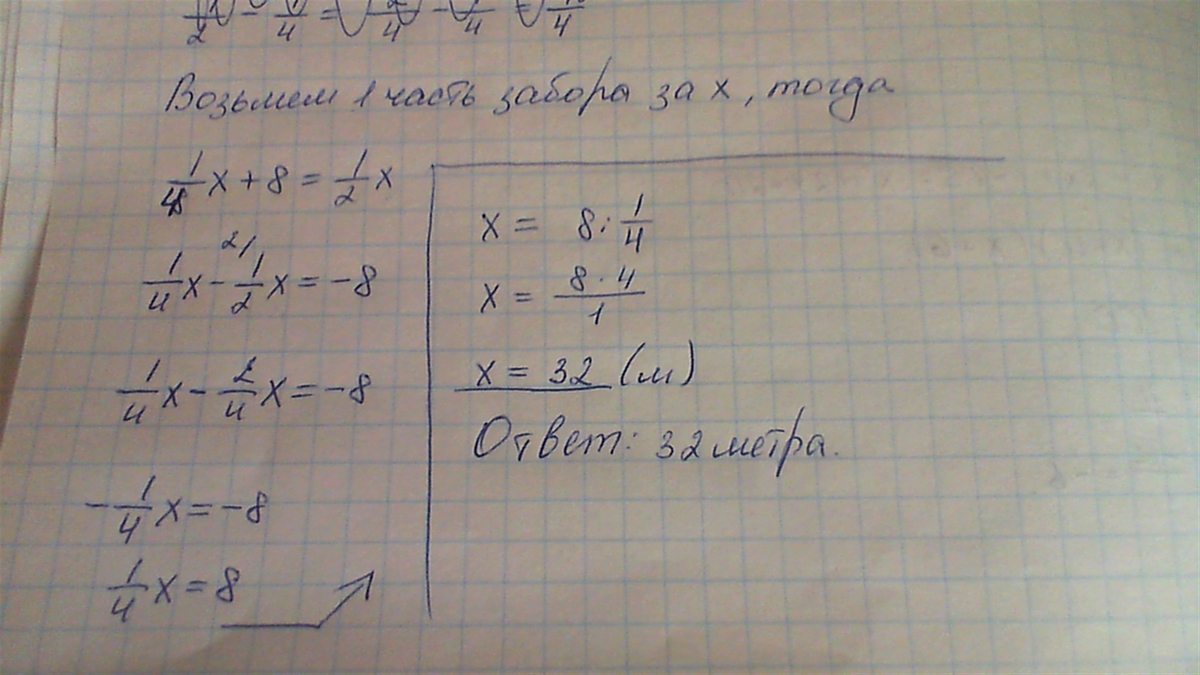 Возьмем 1 часть забора за x, тогда
1/4 x + 8 = 1/2 x
1/4 x - 1/2 x = -8
1/4 x - 2/4 x = -8
- 1/4 x = -8
1/4 x = 8
x = 8 : 1/4
x = 8 · 4 / 1
x = 32 (м)
Ответ: 32 метра.